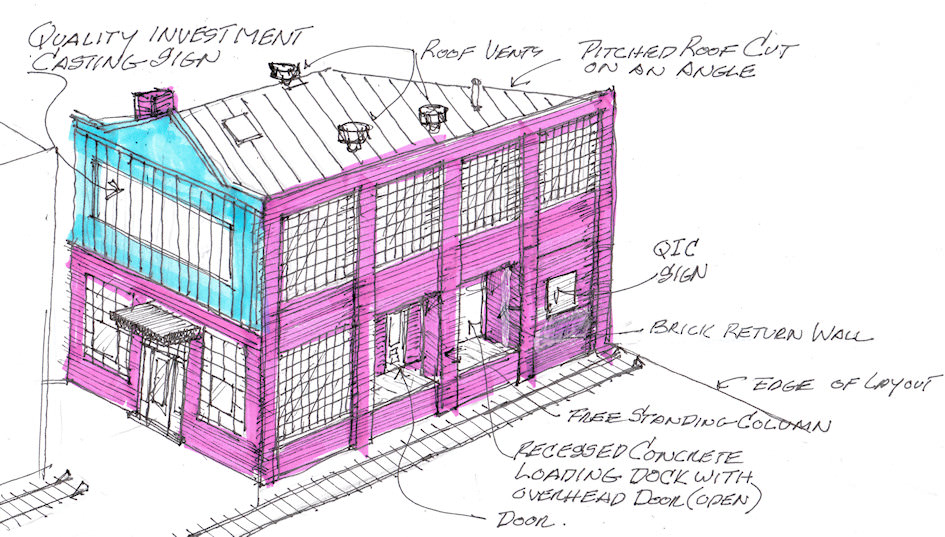 QUALITY INVESTMENT
CASTING SIGN
ROOF VENTS
PITCHED ROOF CUT
ON AN ANGLE
QIC
SIGN
BRICK RETURN WALL
EDGE OF LAYOUT
FREE STANDING COLUMN
RECESSED CONCRETE
LOADING DOCK WITH
OVERHEAD DOOR (OPEN)
DOOR.